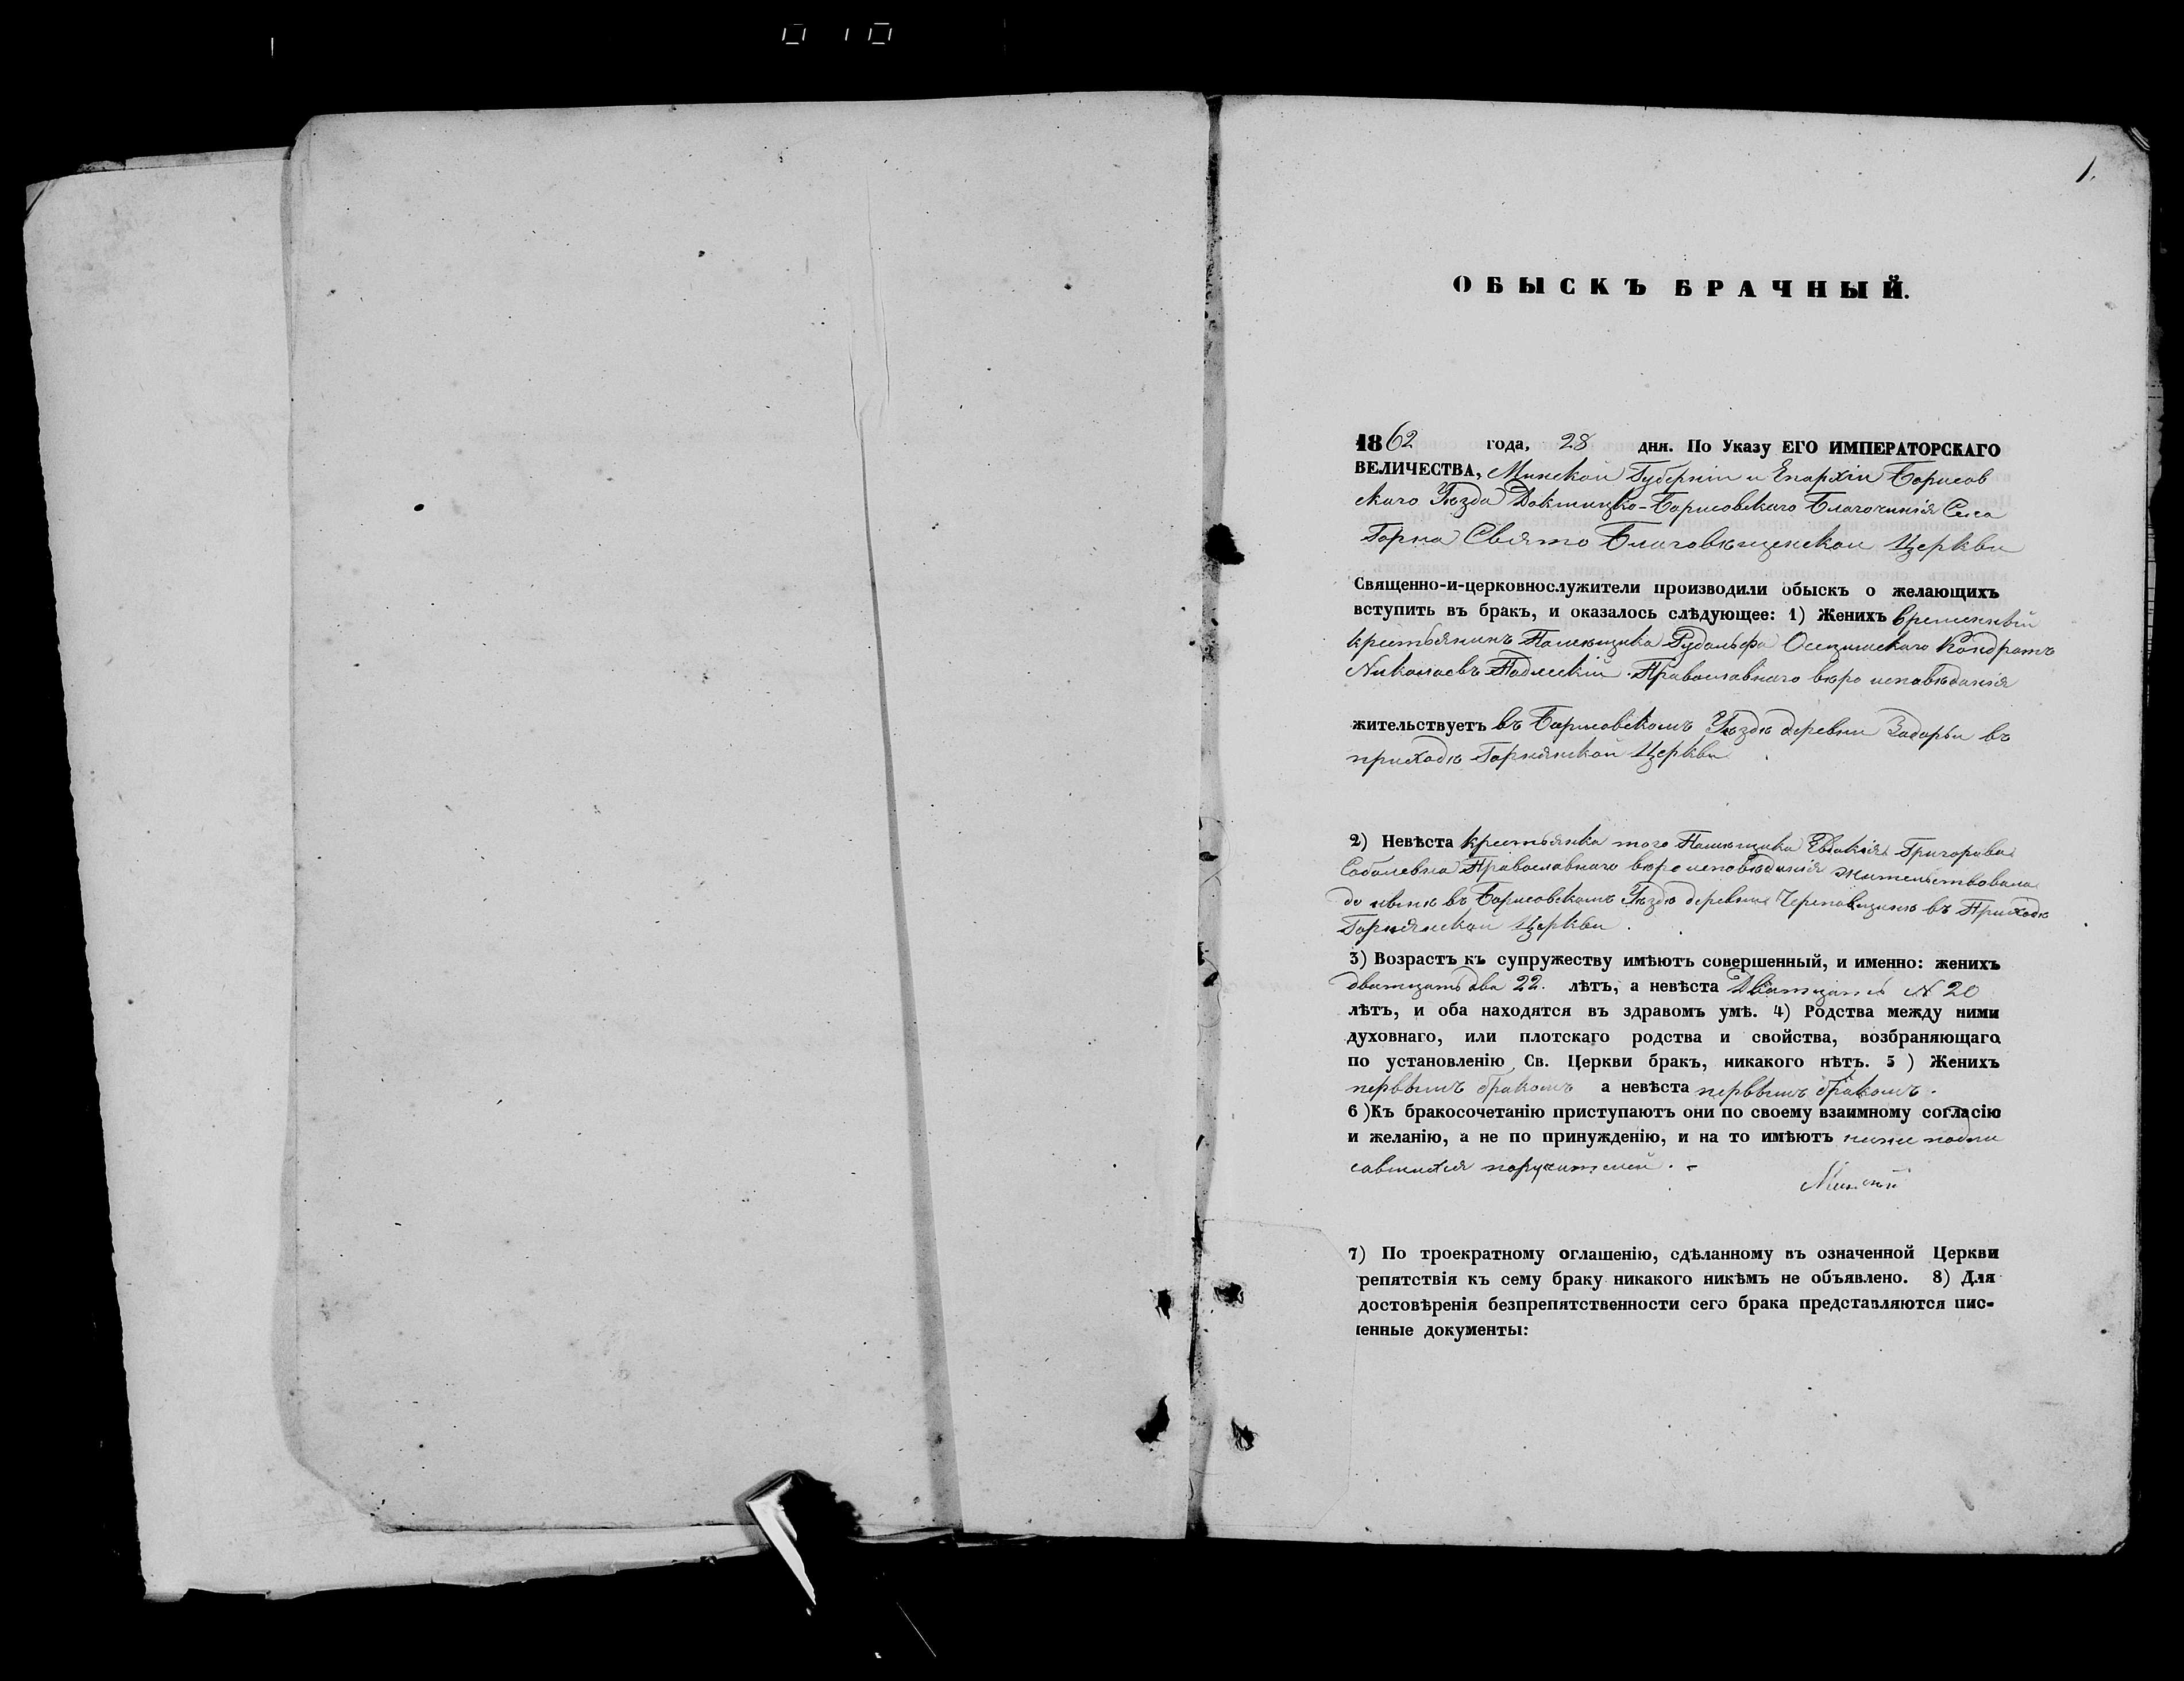 1.
ОБЫСКЪ БРАЧНЫЙ.
1862 года, 28 дня. По Указу ЕГО ИМПЕРАТОРСКАГО
ВЕЛИЧЕСТВА, Минской Губерніи и Епархіи Борисов
скаго Уѣзда Докшицко-Борисовскаго Благочинія Села
Горна Свято Благовѣщенской Церкви
Священно-и-церковнослужители производили обыскъ о желающихъ
вступить въ бракъ, и оказалось слѣдующее: 1) Женихъ временный
крестьянинъ Помѣщика Рудольфа Кондратъ
Николаевъ Православнаго вѣро исповѣданія
жительствуетъ въ Борисовскомъ Уѣздѣ деревни Задорьи въ
приходѣ Горнянской Церкви
2) Невѣста крестьянка того Помѣщика Евдокія Григорова
Соболевна Православнаго вѣро исповѣданія жительствовала
до нынѣ въ Борисовскомъ Уѣздѣ деревни въ Приходѣ
Горнянской Церкви.
3) Возрастъ къ супружеству имѣютъ совершенный, и именно: женихъ
дватцать два 22. лѣтъ, а невѣста Дватцать № 20
лѣтъ, и оба находятся въ здравомъ умѣ. 4) Родства между ними
духовнаго, или плотскаго родства и свойства, возбраняющаго
по установленію Св. Церкви бракъ, никакого нѣтъ. 5 ) Женихъ
первымъ бракомъ а невѣста первымъ бракомъ.
6 )Къ бракосочетанію приступаютъ они по своему взаимному согласію
и желанію, а не по принужденію, и на то имѣютъ ниже подпи
савшихся поручителей. -
7) По троекратному оглашенію, сдѣланному въ означенной Церкви
репятствія къ сему браку никакого никѣмъ не объявлено. 8) Для
достовѣренія безпрепятственности сего брака представляются пис-
енные документы: